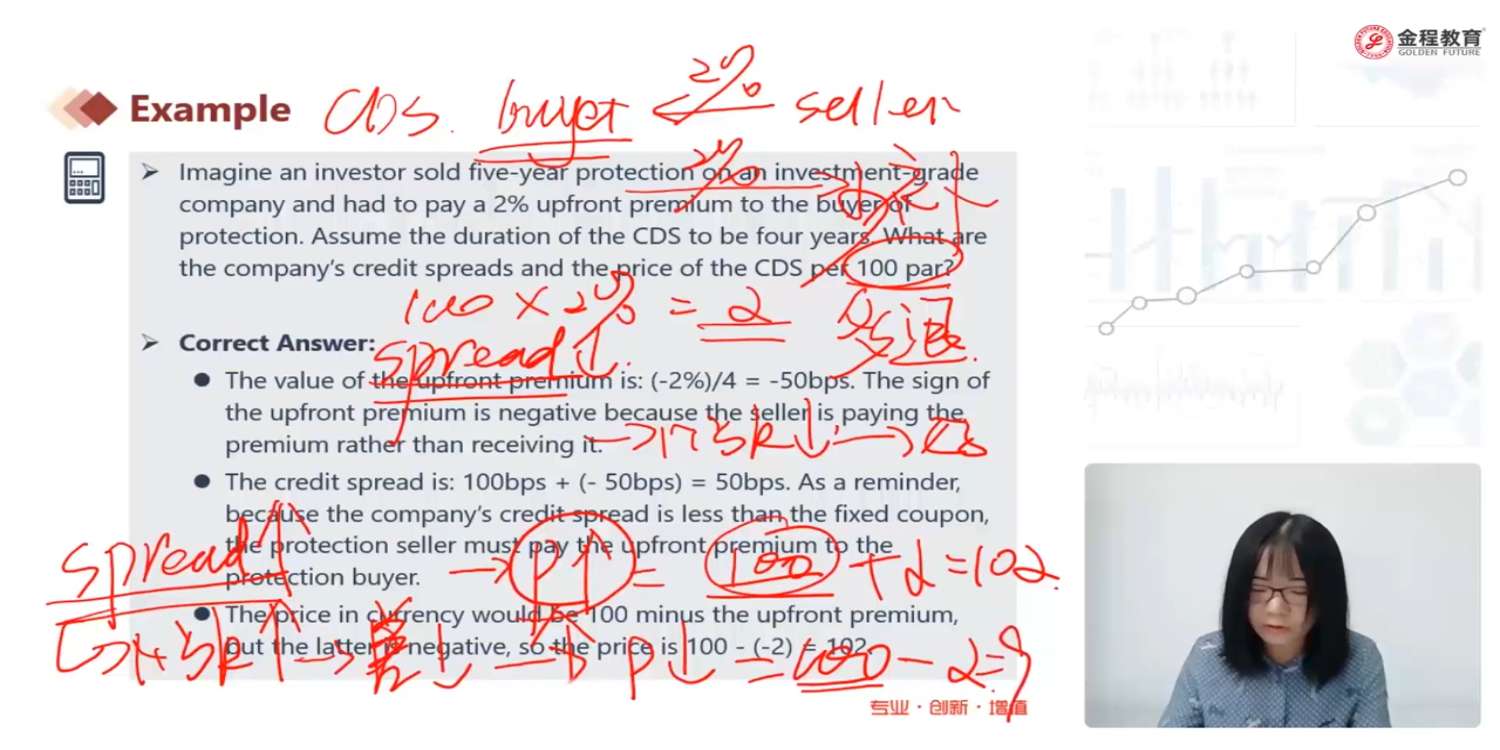 金程教育
GOLDEN FUTURE
Example
CDS. buyer 2% seller
2%
Imagine an investor sold five-year protection on an investment-grade
company and had to pay a 2% upfront premium to the buyer of
protection. Assume the duration of the CDS to be four years. What are
the company's credit spreads and the price of the CDS per 100 par?
100 × 2% = 2 多退
Correct Answer:
spread↓.
The value of the upfront premium is: (-2%)/4 = -50bps. The sign of
the upfront premium is negative because the seller is paying the
premium rather than receiving it.
→ risk↓ →
The credit spread is: 100bps + (- 50bps) = 50bps. As a reminder,
because the company's credit spread is less than the fixed coupon,
the protection seller must pay the upfront premium to the
protection buyer.
spread↑ → P↑ = 100 + 2 = 102
The price in currency would be 100 minus the upfront premium,
but the latter is negative, so the price is 100 - (-2) = 102.
risk↑ → 差↓ → P↓ = 100 - 2 = 9
专业·创新·增值